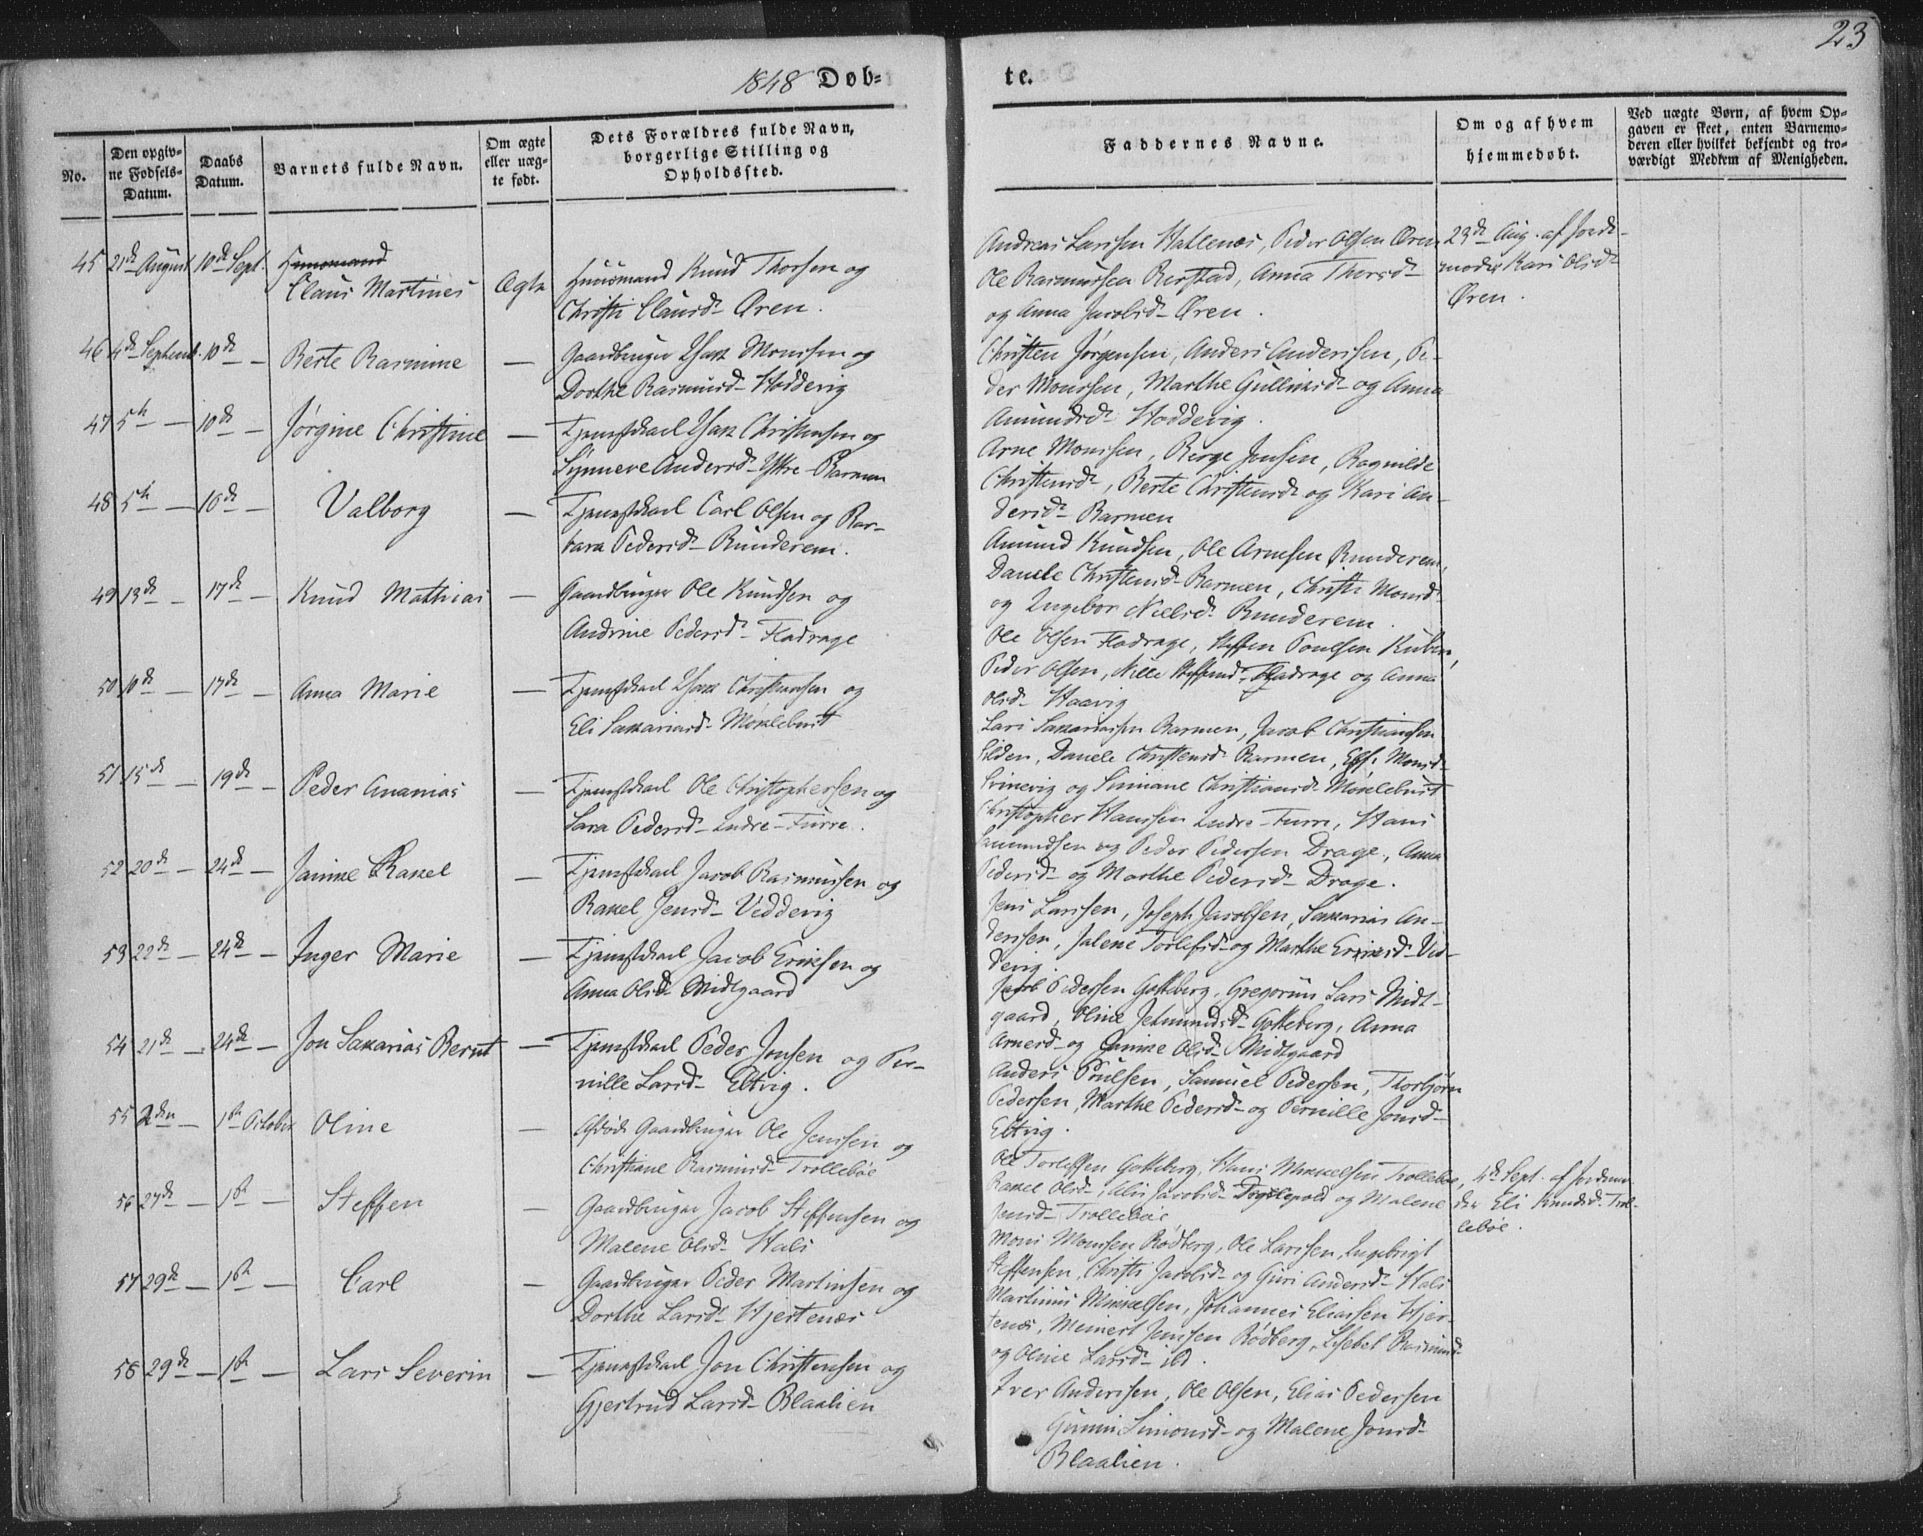 23
1848 Døb-
te.
No.
Den opgiv-
ne Fødsels-
Datum.
Daabs
Datum.
Barnets fulde Navn.
Om ægte
eller uæg-
te født.
Dets Forældres fulde Navn,
borgerlige Stilling og
Opholdssted.
Faddernes Navne.
Om og af hvem
hjemmedøbt.
Ved uægte Børn, af hvem Op-
gaven er skeet, enten Barnemo-
deren eller hvilket bekjendt og tro-
værdigt Medlem af Menigheden.
45 21de August 10de Sept. Huusmand
Claus Martines Ægte Huusmand Knud Thorsen og
Christi Clausd- Øren.
Andreas Larssen Hallenæs, Peder Olsen Øren
Ole Rasmussen Berstad, Anna Thorsd-
og Anna Jacobsd- Øren.
23de Aug. af Jorde-
moder Kari Olsd-
Øren.
46 4de Septemb. 10de - Berte Rasmine - Gaardbruger Isak Monssen og
Dorthe Rasmusd- Hoddevig
Christen Jørgensen, Anders Anderssen, Pe-
der Monssen, Marthe Gulliksd- og Anna
Amundsd- Hoddevig.
47 5te - 10de - Jørgine Christine - Tjenestekarl Isak Christensen og
Synneve Andersd- Ytre-Barmen
Arne Monssen, Berge Jonsen, Ragnilde
Christensd-, Berte Christensd- og Kari An-
dersd- Barmen
48 5te - 10de - Valborg - Tjenestekarl Carl Olsen og Bar-
bara Pedersd- Runderem.
Amund Knudsen, Ole Arnesen Runderem,
Danele Christensd- Barmen, Christi Monsd-
og Ingebor Nielsd- Runderem.
49 13de - 17de - Knud Mathias - Gaardbruger Ole Knudsen og
Andrine Pedersd- Fladrage
Ole Olsen Fladrage, Steffen Poulsen Kuben,
Peder Olsen, Nille Steffensd- Fladrage og Anna
Olsd- Haavig
50 10de - 17de - Anna Marie - Tjenestekarl Isak Christiansen og
Eli Sakariasd- Møklebust
Lars Sakariassen Barmen, Jacob Christiansen
Silden, Danele Christensd- Barmen, Monsd-
og Simiane Christiansd- Møklebust
51 15de - 19de - Peder Ananias - Tjenestekarl Ole Christophersen og
Sara Pedersd- Indre-Furre.
Christopher Hanssen Indre-Furre, Hans
Samundsen og Peder Pedersen Drage, Anna
Pedersd- og Marthe Pedersd- Drage.
52 20de - 24de - Janine Rakel - Tjenestekarl Jacob Rasmussen og
Rakel Jensd- Veddevig
Jens Larssen, Joseph Jacobsen, Sakarias An-
derssen, Jalene Torlefsd- og Marthe Eriksd- Ved-
devig.
53 22de - 24de - Inger Marie - Tjenestekarl Jacob Eriksen og
Anna Olsd- Midtgaard
Jacob Pedersen Gotteberg, Gregorius Lars Midt-
gaard, Oline Jetmundsd- Gotteberg, Anna
Arnesd- og Janine Olsd- Midtgaard
54 21de - 24de - Jon Sakarias Bernt - Tjenestekarl Peder Jonsen og Per-
nille Larsd- Eltvig.
Anders Poulsen, Samuel Pedersen, Thorbjørn
Pedersen, Marthe Pedersd- og Pernille Jonsd-
Eltvig.
55 2den - 1ste October Oline - Afdøde Gaardbruger Ole Jenssen og
Christiane Rasmusd- Trollebøe
Ole Torlefsen Gotteberg, Hans Mikkelsen Trollebøe,
Rakel Olsd-, Jacobsd- og Malene
Jensd- Trollebøe
4de Sept. af Jordemo-
der Eli Knudsd- Trol-
lebøe.
56 27de - 1ste - Steffen - Gaardbruger Jacob Steffensen og
Malene Olsd- Hals
Mons Monssen Rødberg, Ole Larssen, Ingebrigt
Steffensen, Christi Jacobsd- og Guri Andersd- Hals
57 29de - 1ste - Carl - Gaardbruger Peder Martinsen og
Dorthe Larsd- Hjertenæs
Martinus Mikkelsen, Johannes Eliassen Hjer-
tenæs, Meinert Jenssen Rødberg, Lisebet Rasmusd-
og Oline Larsd- ibd.
58 29de - 1ste - Lars Severin - Tjenestekarl Jon Christensen og
Gjertrud Larsd- Blaalien
Iver Anderssen, Ole Olsen, Elias Pedersen
Simonsd- og Malene Jonsd-
Blaalien.